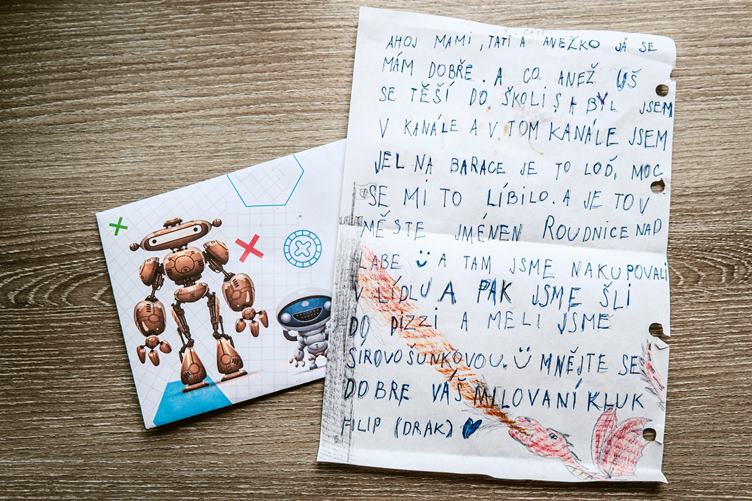 AHOJ MAMI, TATI A ANEŽKO JÁ SE
MÁM DOBŘE. A CO ANEŽ UŠ
SE TĚŠÍ DO ŠKOLI S A BYL JSEM
V KANÁLE A V TOM KANÁLE JSEM
JEL NA BARACE JE TO LOĎ, MOC
SE MI TO LÍBILO. A JE TO V
MĚSTE JMÉNEN ROUDNICE NAD
LABE A TAM JSME NAKUPOVALI
V LÍDLU A PAK JSME ŠLI
DO PIZZI A MELI JSME
SIROVOŠUNKOVOU. MNĚJTE SE
DOBRE VÁŠ MILOVANÍ KLUK
FILIP (DRAK)